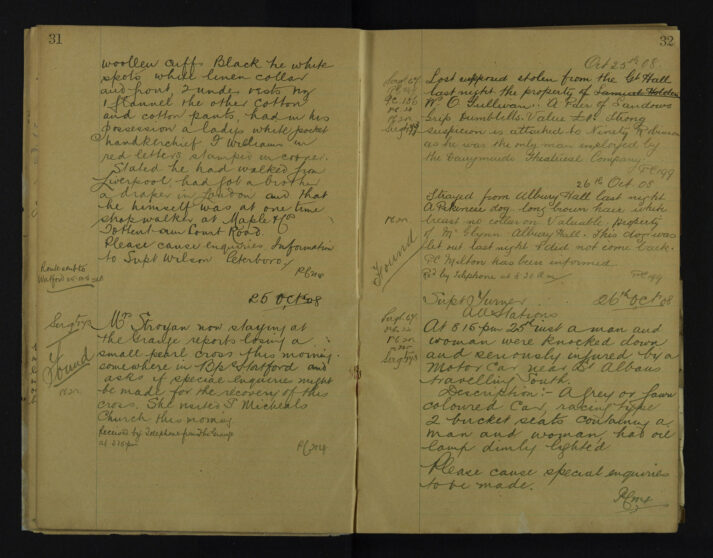 31
woollen cuffs Black tie white
spots white linen collar
and front, 2 under vests
1 flannel the other cotton
and cotton pants, had in his
possession a ladys white pocket
handkerchief, I Williams in
red letters stamped in corner.
Stated he had walked from
Liverpool, had got a brother
a draper in London and that
he himself was at one time
shopwalker at Maple & Co
Tottenham Court Road.
Please cause enquiries Information
to Supt Wilson Peterboro
25 Oct 08
Found
Mrs Stroyan now staying at
the Grange reports losing a
small pearl cross this morning
somewhere in Bp Stortford and
asks if special enquiries might
be made for the recovery of this
cross. She visited St Micheals
Church this morning
Received by Telephone from The Grange
32
Oct 25th 08.
Lost supposed stolen from the Gt Hall
last night the property of Samuel Holden
W. O Sullivan. A Pair of Sandows
Grip Dumbbells. Value strong
suspicion is attached to
as he was the only man employed by
the Theatrical Company
26th Oct. 08
Found
Strayed from Albury Hall last night
A Pekinese dog long brown hair white
breast no collar on Valuable property
of Mr Flynn Albury Hall. This dog was
let out last night & did not come back.
PC Milton has been informed
Rd by Telephone at
Supt Turner 26th Oct 08
All Stations
At 8 15 pm 25th inst a man and
woman were knocked down
and seriously injured by a
Motor Car near St Albans
travelling South.
Description:- A grey or fawn
coloured Car, racing type
2 bucket seats containing a
man and woman, had oil
lamp dimly lighted
Please cause special enquiries
to be made.